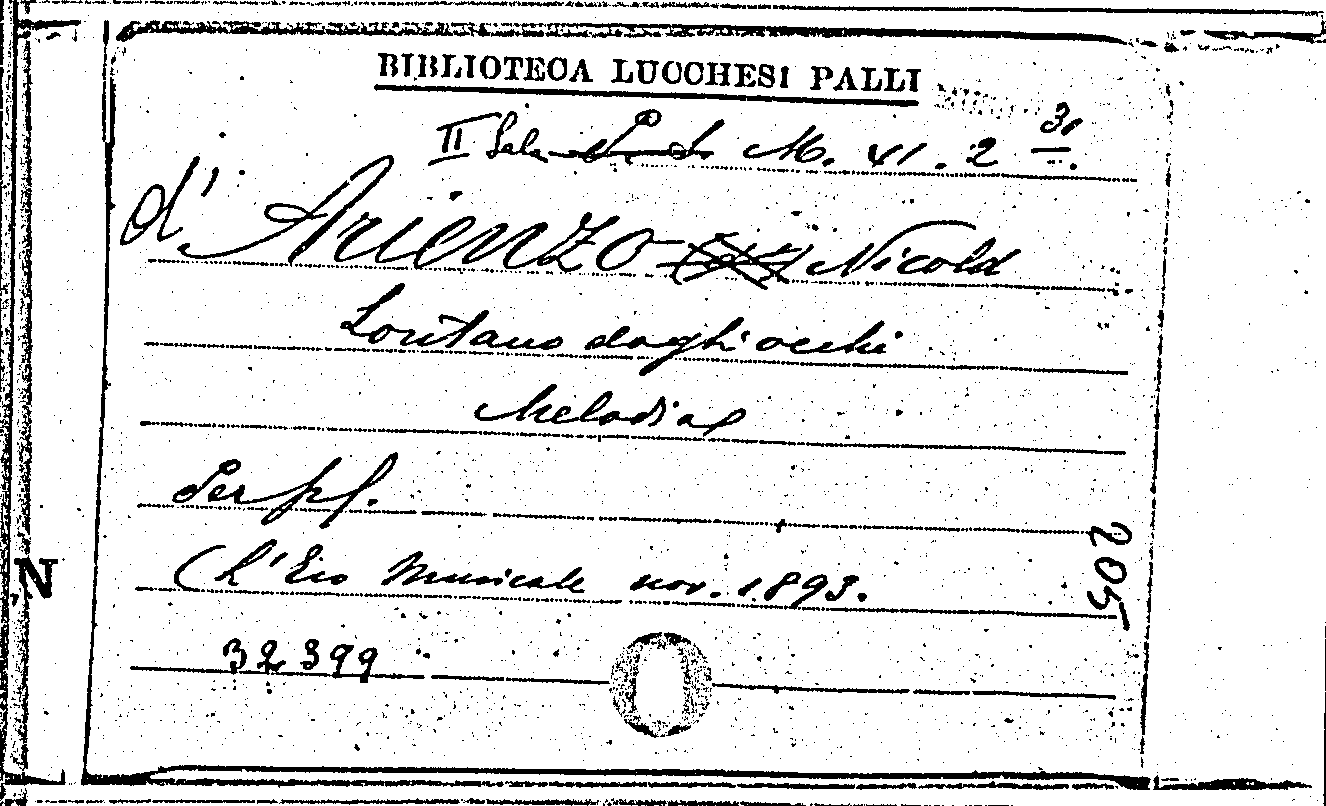 BIBLIOTECA LUCCHESI PALLI
II Sala P. S. M. VI. 2 31.
d' Arienzo (d') Nicola
Lontano dagli occhi
Melodia
Per pf.
(L'Eco Musicale nov. 1893.
32399
205
N